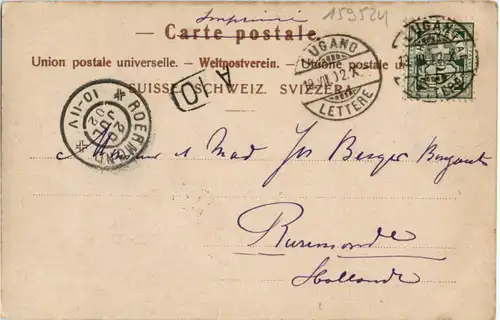 Imprimé
159524
Carte postale.
Union postale universelle. — Weltpostverein. — Unione postale
SUISSE. SCHWEIZ. SVIZZERA.
LUGANO
LETTERE
LUGANO
LETTERE
ROERMOND
20
JUL
02
10-11V
Monsieur & Mad Jos Berger
Ruremonde
Hollande